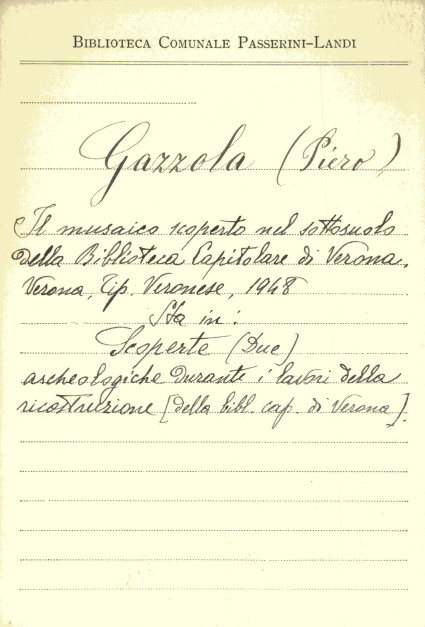 BIBLIOTECA COMUNALE PASSERINI-LANDI
Gazzola (Piero)
Il musaico scoperto nel sottosuolo
della Biblioteca Capitolare di Verona.
Verona, Tip. Veronese, 1948
Sta in:
Scoperte (Due)
archeologiche durante i lavori della
ricostruzione [della bibl. cap. di Verona].